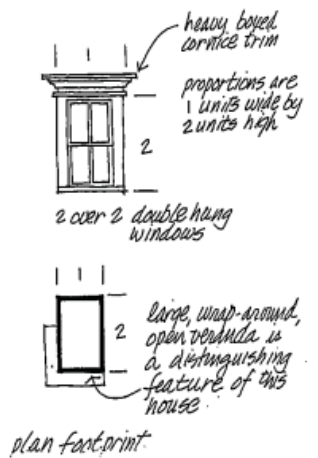 heavy boxed
cornice trim
1
proportions are
1 units wide by
2 units high
2
2 over 2 double hung
windows
1
2
large, wrap-around,
open veranda is
a distinguishing
feature of this
house
plan footprint